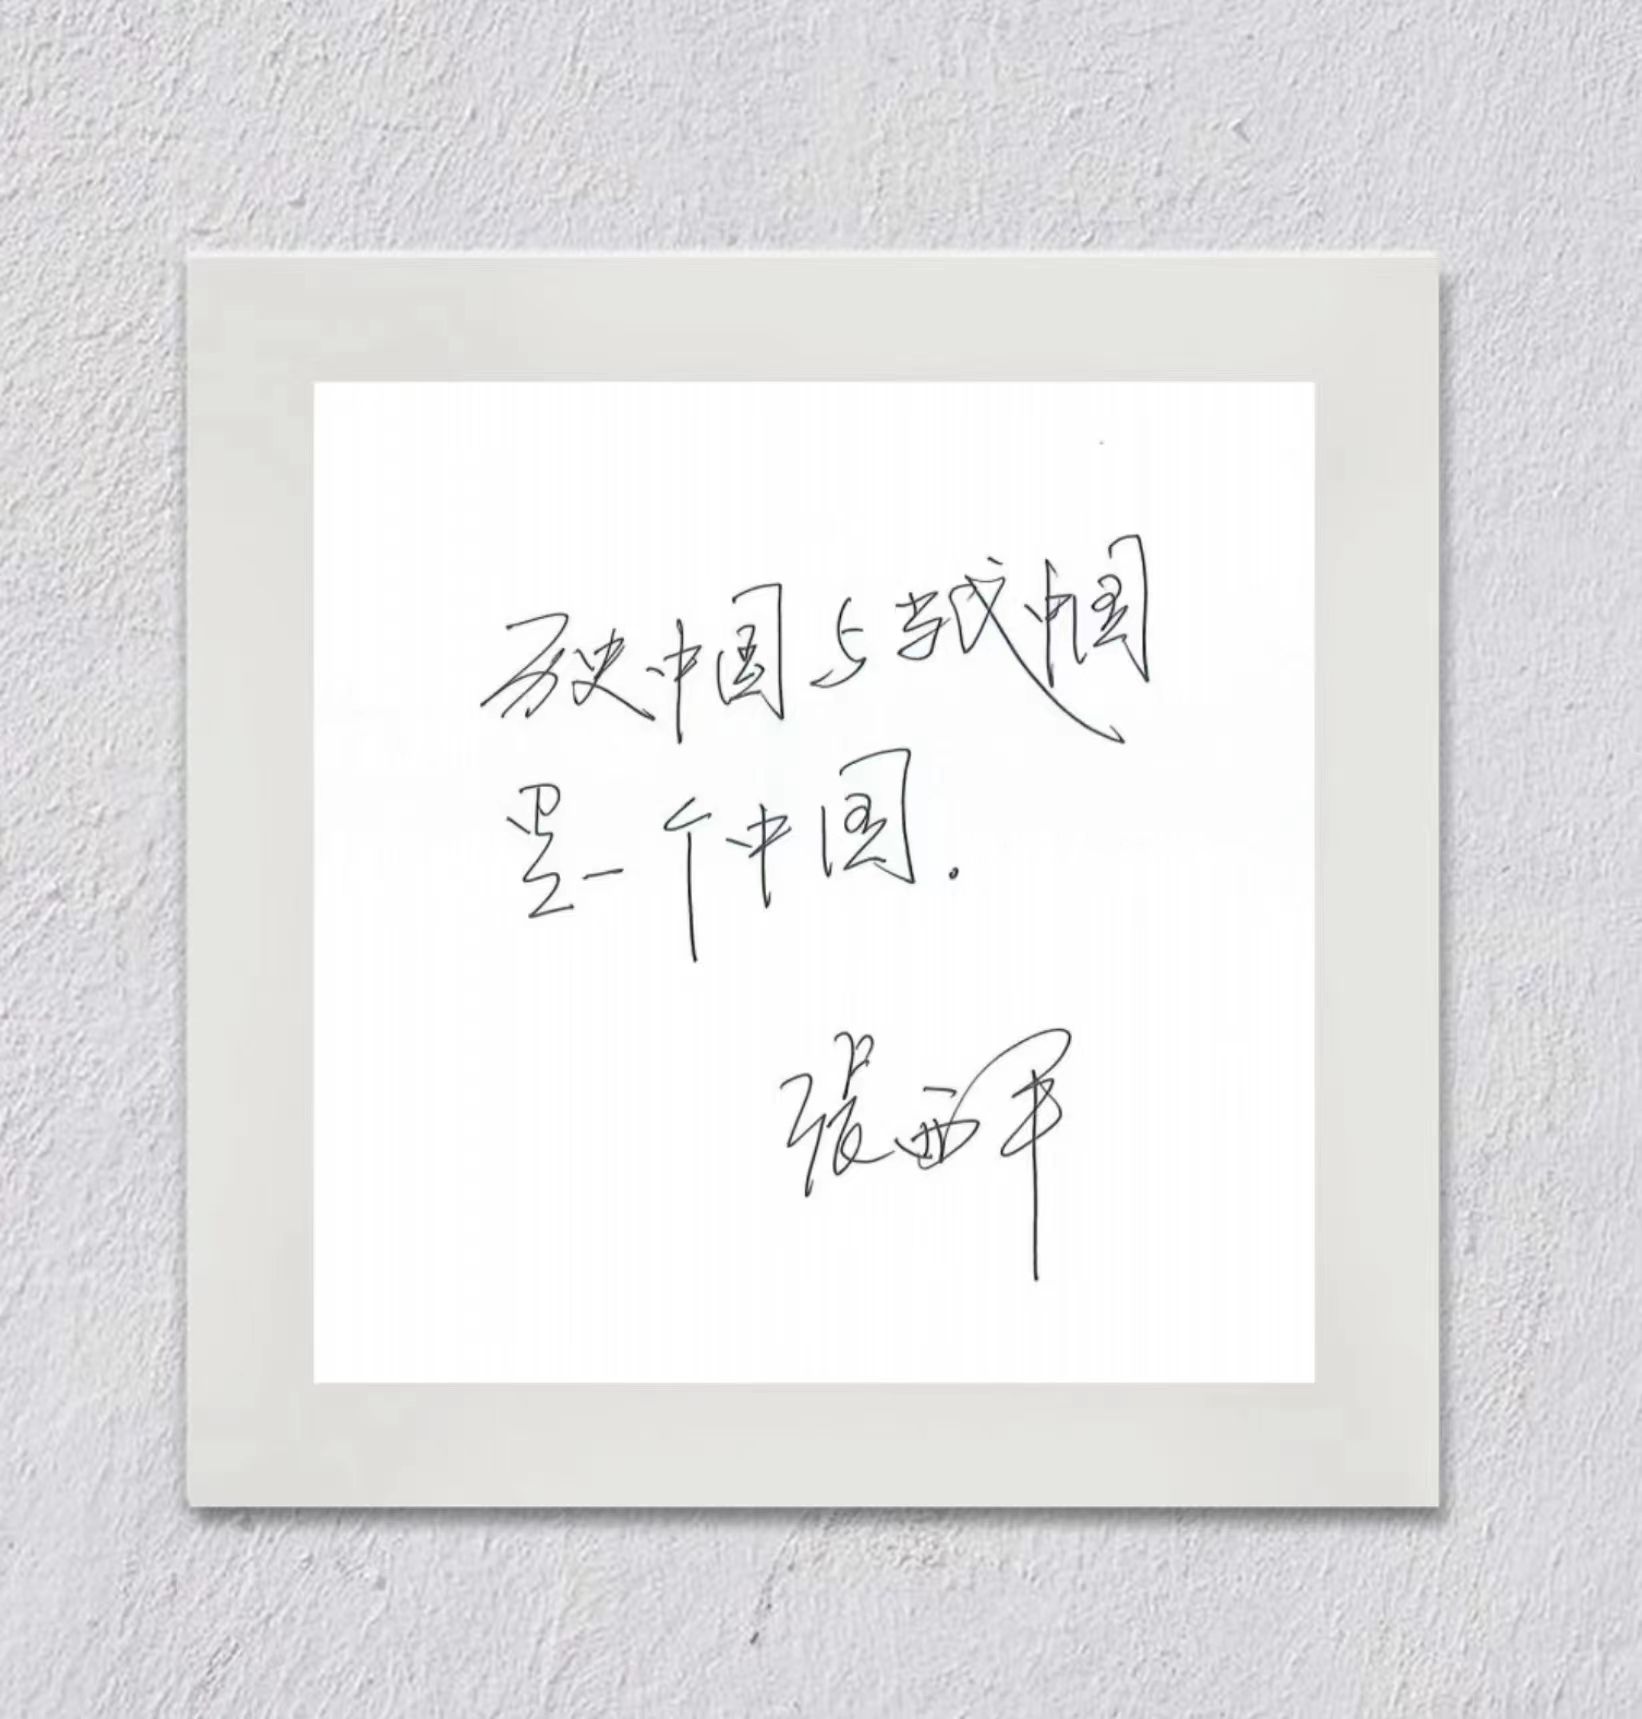 历史中国与当代中国
是一个中国.
张西平